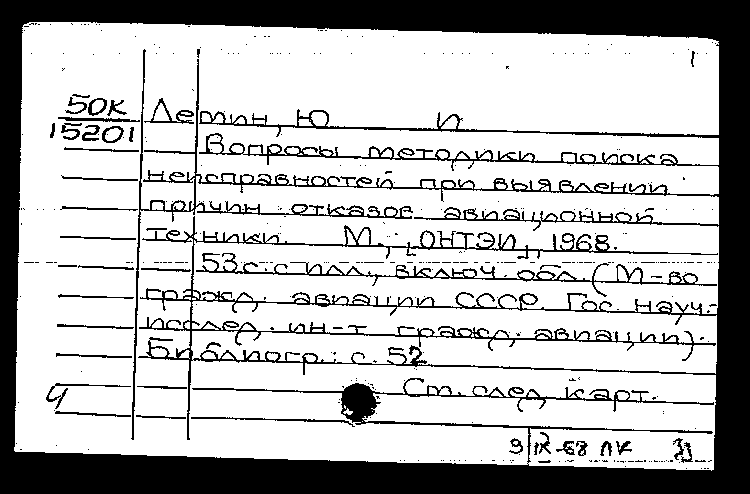 1
50К
15201
Летин, Ю И
Вопросы методики поиска
неисправностей при выявлении
причин отказов авиационной
техники. М., [ОНТЭИ], 1968.
53 с. с илл., включ. обл. (М-во
гражд. авиации СССР. Гос. науч.-
исслед. ин-т гражд. авиации).
Библиогр.: с. 52
См. след. карт.
Ч
9/IX-68 ЛК